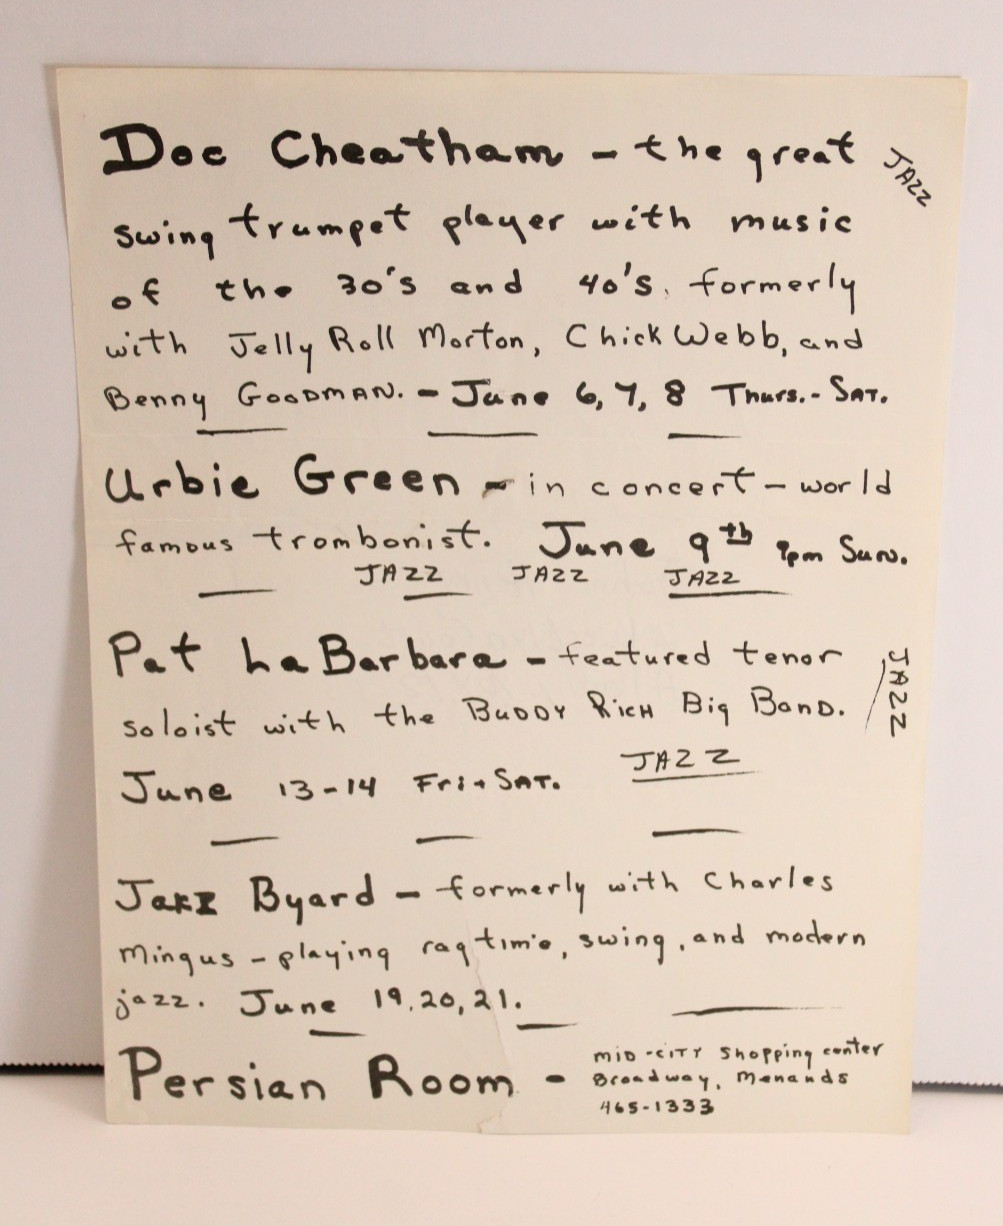 Doc Cheatham - the great JAZZ
swing trumpet player with music
of the 30's and 40's. formerly
with Jelly Roll Morton, Chick Webb, and
Benny GOODMAN. - June 6, 7, 8 Thurs. - SAT.
Urbie Green - in concert - world
famous trombonist. June 9th 9pm Sun.
JAZZ JAZZ JAZZ
Pat LaBarbara - featured tenor
soloist with the BUDDY RICH Big BanD.
JAZZ
June 13-14 Fri + SAT. JAZZ
Byard - formerly with Charles
Mingus - playing ragtime, swing, and modern
jazz. June 19, 20, 21.
Persian Room -
MID-CITY Shopping center
Broadway, Menands
465-1333